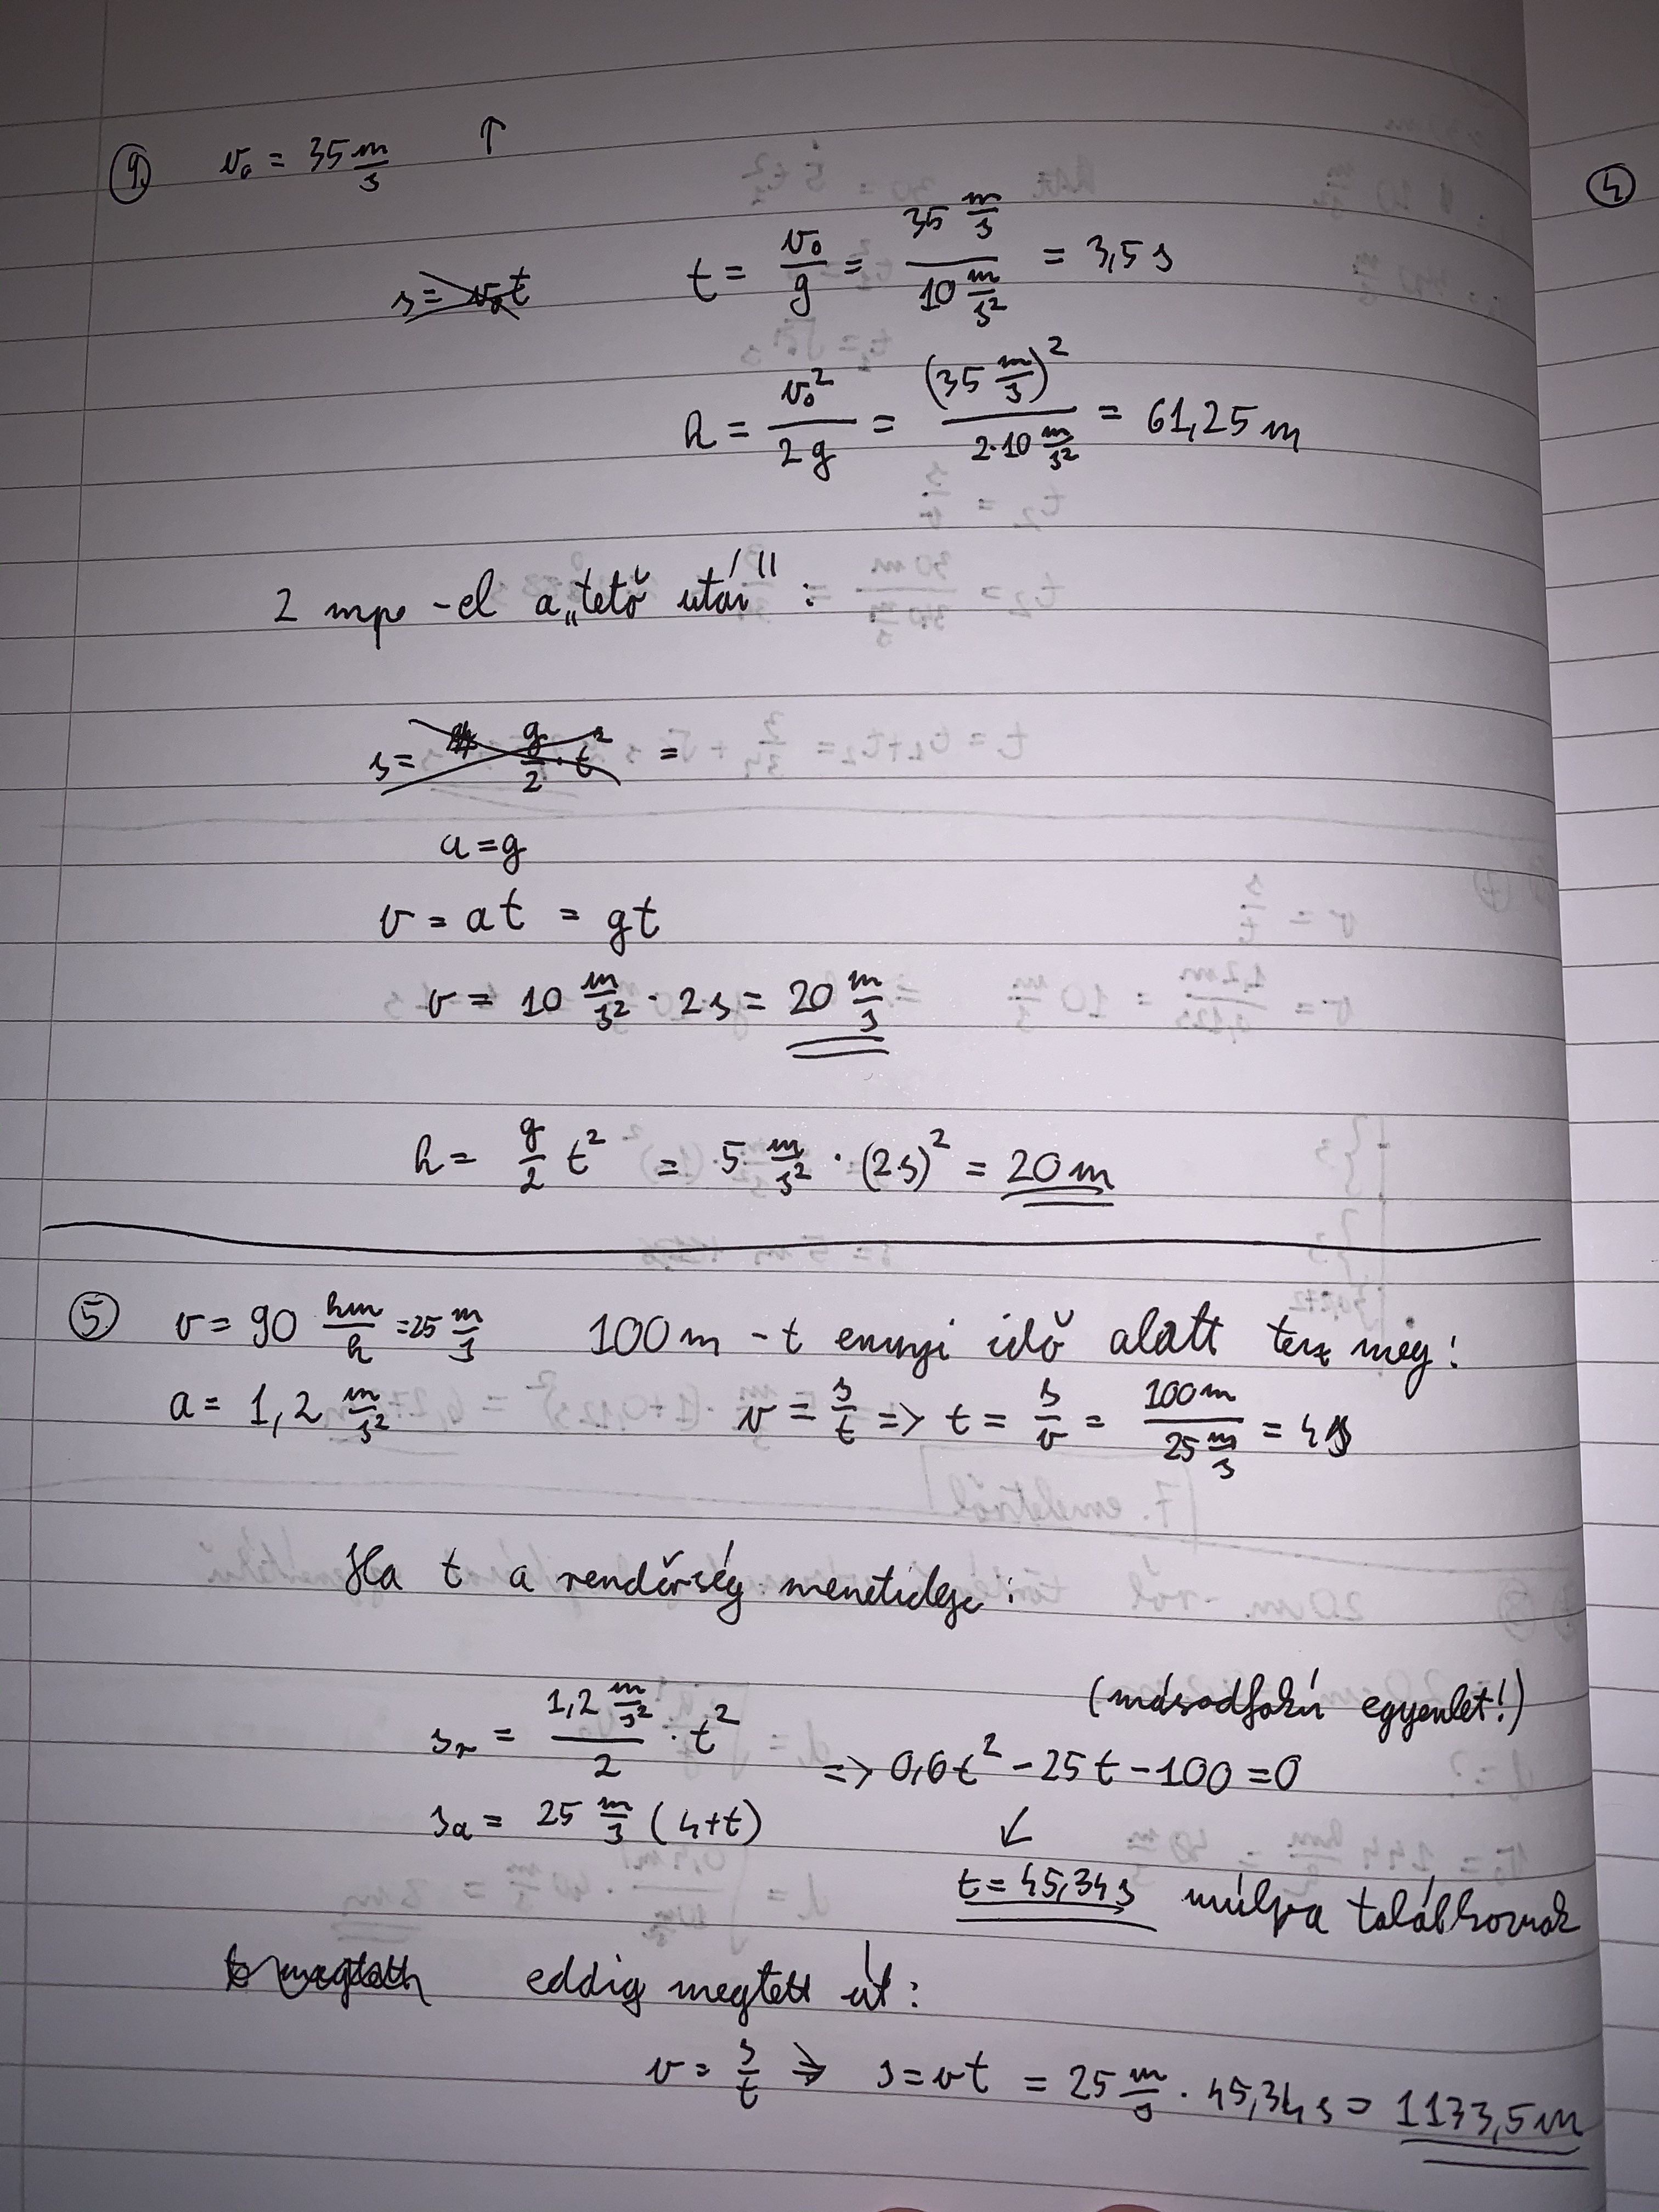 9. v₀ = 35 m/s ↑
s = v₀t
t = v₀/g = (35 m/s)/(10 m/s²) = 3,5 s
h = v₀²/2g = (35 m/s)²/(2·10 m/s²) = 61,25 m
2 mp -el a „tető után":
s = g/2 · t² =
a = g
v = at = gt
v = 10 m/s² · 2s = 20 m/s
h = g/2 t² = 5 m/s² · (2s)² = 20 m
5 v = 90 km/h = 25 m/s 100 m -t ennyi idő alatt tesz meg:
a = 1,2 m/s² v = s/t => t = s/v = 100m/(25 m/s) = 4 s
Ha t a rendőrség menetideje:
(másodfokú egyenlet!)
sᵣ = (1,2 m/s²)/2 · t²
=> 0,6t² - 25t - 100 = 0
sₐ = 25 m/s (4+t) ↙
t = 45,34 s múlva találkoznak
eddig megtett út:
v = s/t => s = vt = 25 m/s · 45,34 s = 1133,5 m
4